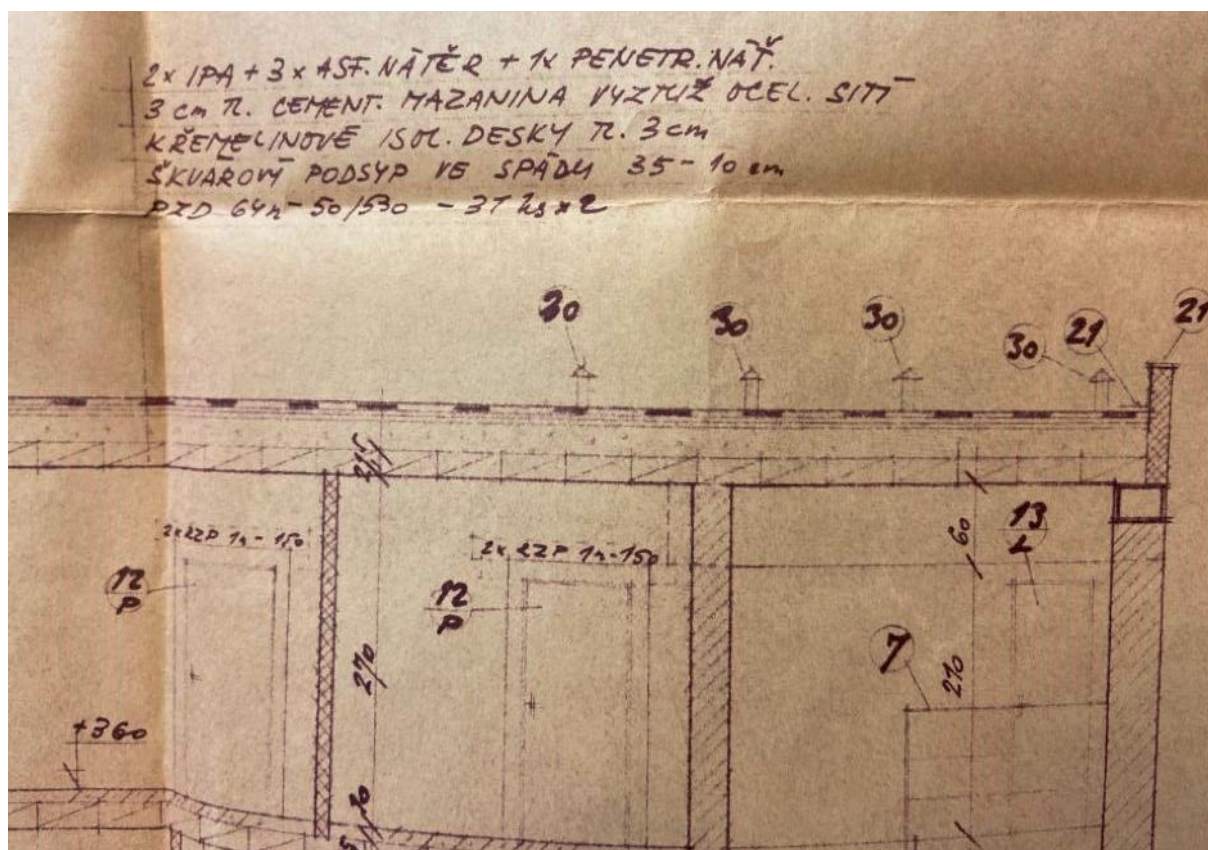 2x IPA + 3x ASF. NÁTĚR + 1x PENETR. NÁT.
3 cm TL. CEMENT. MAZANINA VYZTUŽ OCEL. SÍTÍ
KŘEMELINOVÉ ISOL. DESKY TL. 3 cm
ŠKVÁROVÝ PODSYP VE SPÁDU 35 - 10 cm
PZD 64n - 50/530 - 3T
30
30
30
30
21
21
215
2x RZP 1n - 150
2x RZP 1n - 150
60
13
L
12
P
12
P
7
270
210
+360